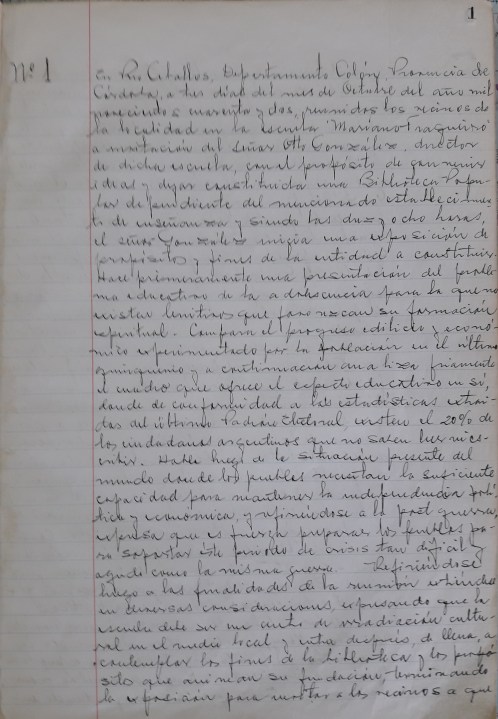 1
Nº 1
En Río Ceballos, Departamento Colón, Provincia de
Córdoba, a tres días del mes de Octubre del año mil
novecientos cuarenta y dos, reunidos los vecinos de
la localidad en la escuela "Mariano Fragueiro"
a invitación del señor Otto González, director
de dicha escuela, con el propósito de
ideas y dejar constituida una Biblioteca Popu-
lar dependiente del mencionado establecimien-
to de enseñanza y siendo las diez y ocho horas,
el señor González inicia una exposición de
propósitos y fines de la entidad a constituir.
Hace primeramente una presentación del proble-
ma educativo de la adolescencia para la que no
existen que favorezcan su formación
espiritual. Compara el progreso edilicio y econó-
mico experimentado por la población en el último
quinquenio y a continuación analiza friamente
el cuadro que ofrece el aspecto educativo en sí,
donde de conformidad a las estadísticas extraí-
das del último Padrón Electoral, existen el 20% de
los ciudadanos argentinos que no saben leer ni es-
cribir. Habla luego de la situación presente del
mundo donde los pueblos necesitan la suficiente
capacidad para mantener la independencia polí-
tica y económica, y refiriéndose a la post guerra,
expresa que es fuerza preparar los pueblos pa-
ra soportar este período de crisis tan difícil y
agudo como la misma guerra. Refiriéndose
luego a las finalidades de la reunión
en diversas consideraciones, expresando que la
escuela debe ser un centro de irradiación cultu-
ral en el medio local y entra después, de lleno, a
contemplar los fines de la biblioteca y los propó-
sitos que animan su fundación, terminando
la exposición para invitar a los vecinos a que